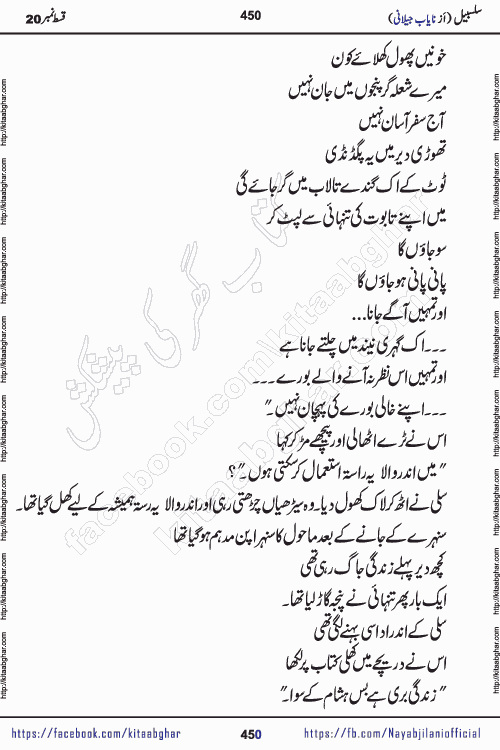 سلسبیل (از نایاب جیلانی)
450
قسط نمبر 20
خونیں پھول کھلائے کون
میرے شعلہ گر پنجوں میں جان نہیں
آج سفر آسان نہیں
تھوڑی دیر میں یہ پگڈنڈی
ٹوٹ کے اک گندے تالاب میں گر جائے گی
میں اپنے تابوت کی تنہائی سے لپٹ کر
سو جاؤں گا
پانی پانی ہو جاؤں گا
اور تمہیں آگے جانا...
...اک گہری نیند میں چلتے جانا ہے
اور تمہیں اس نظر نہ آنے والے بورے...
...اپنے خالی بورے کی پہچان نہیں۔"
اس نے ٹرے اٹھا لی اور پیچھے مڑ کر کہا
"میں اندر والا یہ راستہ استعمال کر سکتی ہوں۔"؟
سلی نے اٹھ کر لاک کھول دیا۔ وہ سیڑھیاں چڑھتی رہی اور اندر والا یہ رستہ ہمیشہ کے لیے کھل گیا تھا۔
سنہرے کے جانے کے بعد ماحول کا سنہرا پن مدہم ہو گیا تھا
کچھ دیر پہلے زندگی جاگ رہی تھی
ایک بار پھر تنہائی نے پنجہ گاڑ لیا تھا۔
سلی کے اندر اداسی بہنے لگی تھی
اس نے دریچے میں کھلی کتاب پر لکھا
"زندگی بری ہے بس ہشام کے سوا۔"
کتاب گھر کی پیشکش
facebook.com/kitaabghar
http://kitaabghar.com
https://facebook.com/kitaabghar
450
https://fb.com/Nayabjilaniofficial